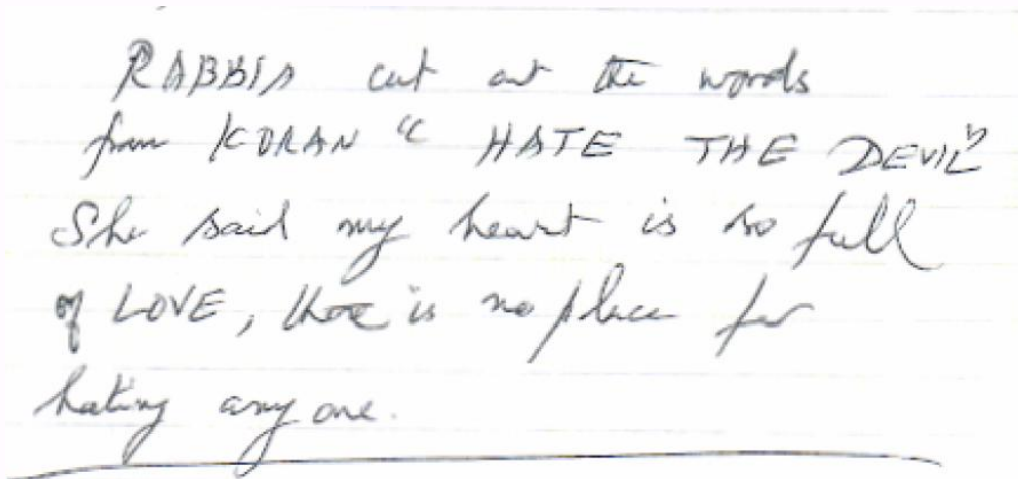 RABBIA cut out the words
from KORAN " HATE THE DEVIL"
She said my heart is so full
of LOVE, there is no place for
hating any one.